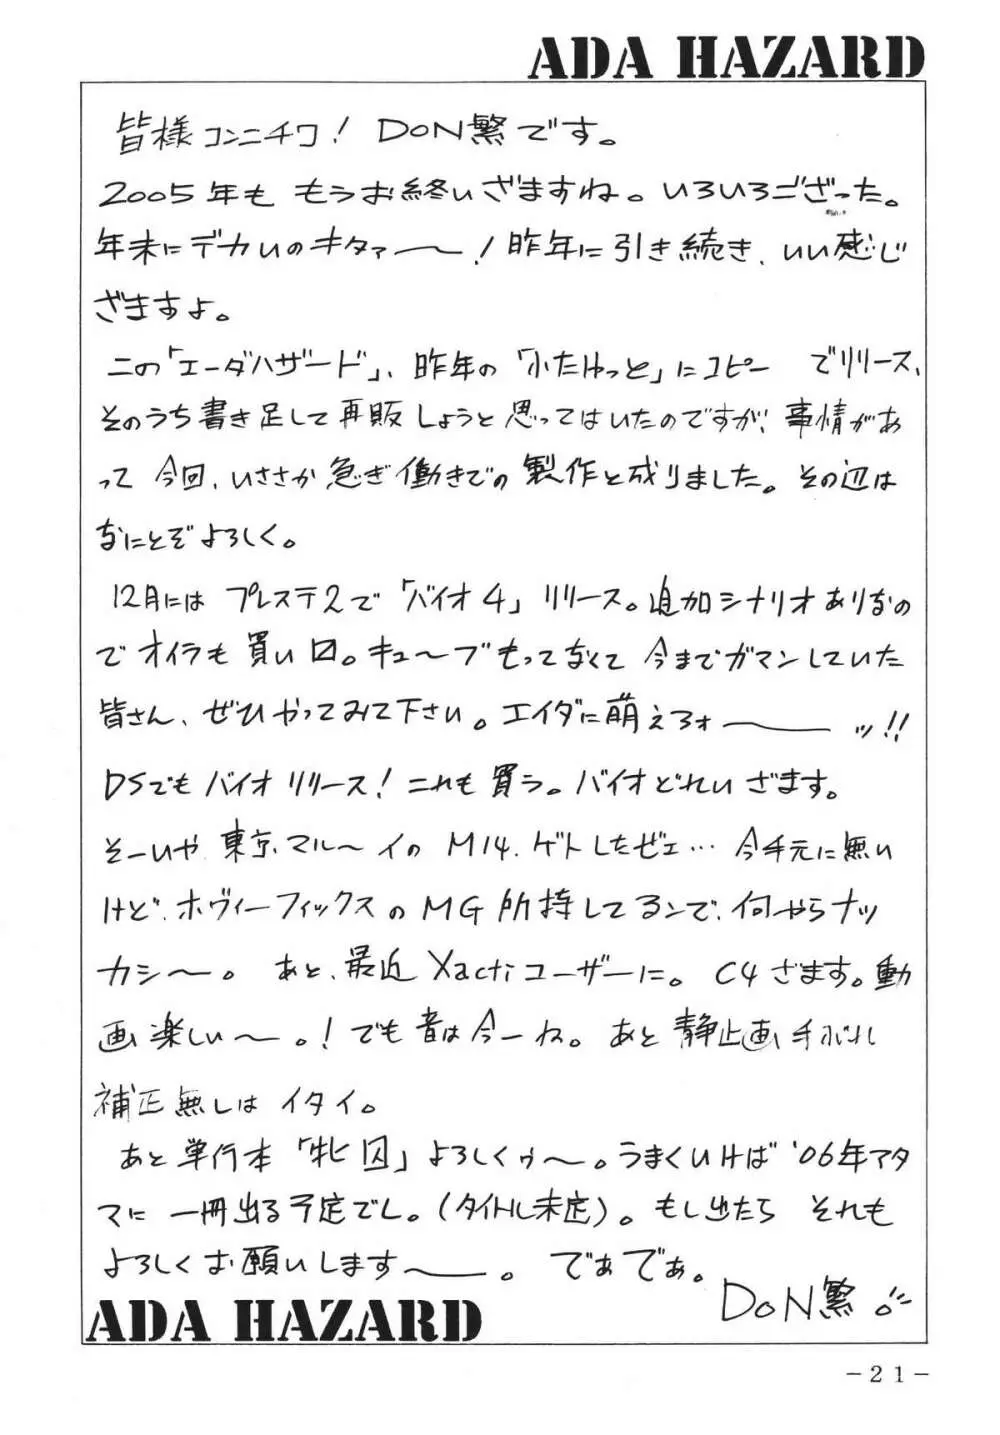 ADA HAZARD
皆様コンニチワ! DON繁です。
2005年も もうお終いざますね。いろいろござった。
年末にデカいのキタァ〜! 昨年に引き続き、いい感じ
ざますよ。
この「エーダハザード」、昨年の「ふたけっと」にコピー でリリース、
そのうち書き足して再販しようと思ってはいたのですが、事情があ
って 今回、いささか急ぎ働きでの製作と成りました。その辺は
なにとぞよろしく。
12月には プレステ2で「バイオ4」リリース。追加シナリオありなの
でオイラも買い口。キュ〜ブもってなくて 今までガマンしていた
皆さん、ぜひやってみて下さい。エイダに萌えろォ――ッ!!
DSでもバイオリリース! これも買う。バイオどれいざます。
そーいや、東京マル〜イの M14、ゲトしたぜェ… 今手元に無い
けど、ホヴィーフィックスのMG所持してるンで、何やらナッ
カシ〜。 あと、最近 Xactiユーザーに。 C4ざます。動
画楽しい〜。! でも音は今一ね。あと静止画手ぶれ
補正無しは イタイ。
あと単行本「牝囚」よろしくゥ〜。うまくいけば '06年アタ
マに 一冊出る予定でし。(タイトル未定)。もし出たら それも
よろしくお願いします〜。 でぁでぁ。
DON繁
ADA HAZARD
－21－